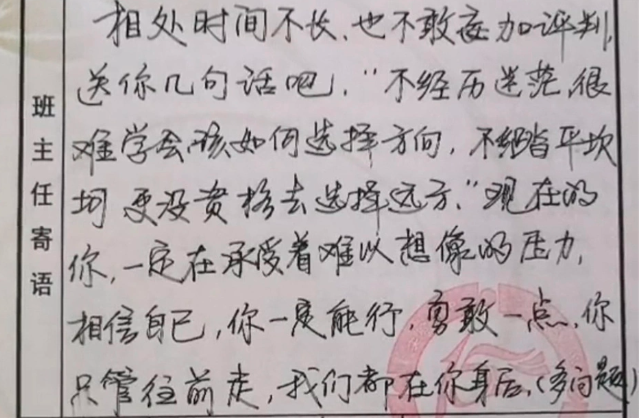 班主任寄语
相处时间不长,也不敢妄加评判,
送你几句话吧,“不经历迷茫,很
难学会该如何选择方向,不经踏平坎
坷 更没资格去选择远方。”现在的
你,一定在承受着难以想像的压力,
相信自己,你一定能行,勇敢一点,你
只管往前走,我们都在你身后,(多问题)